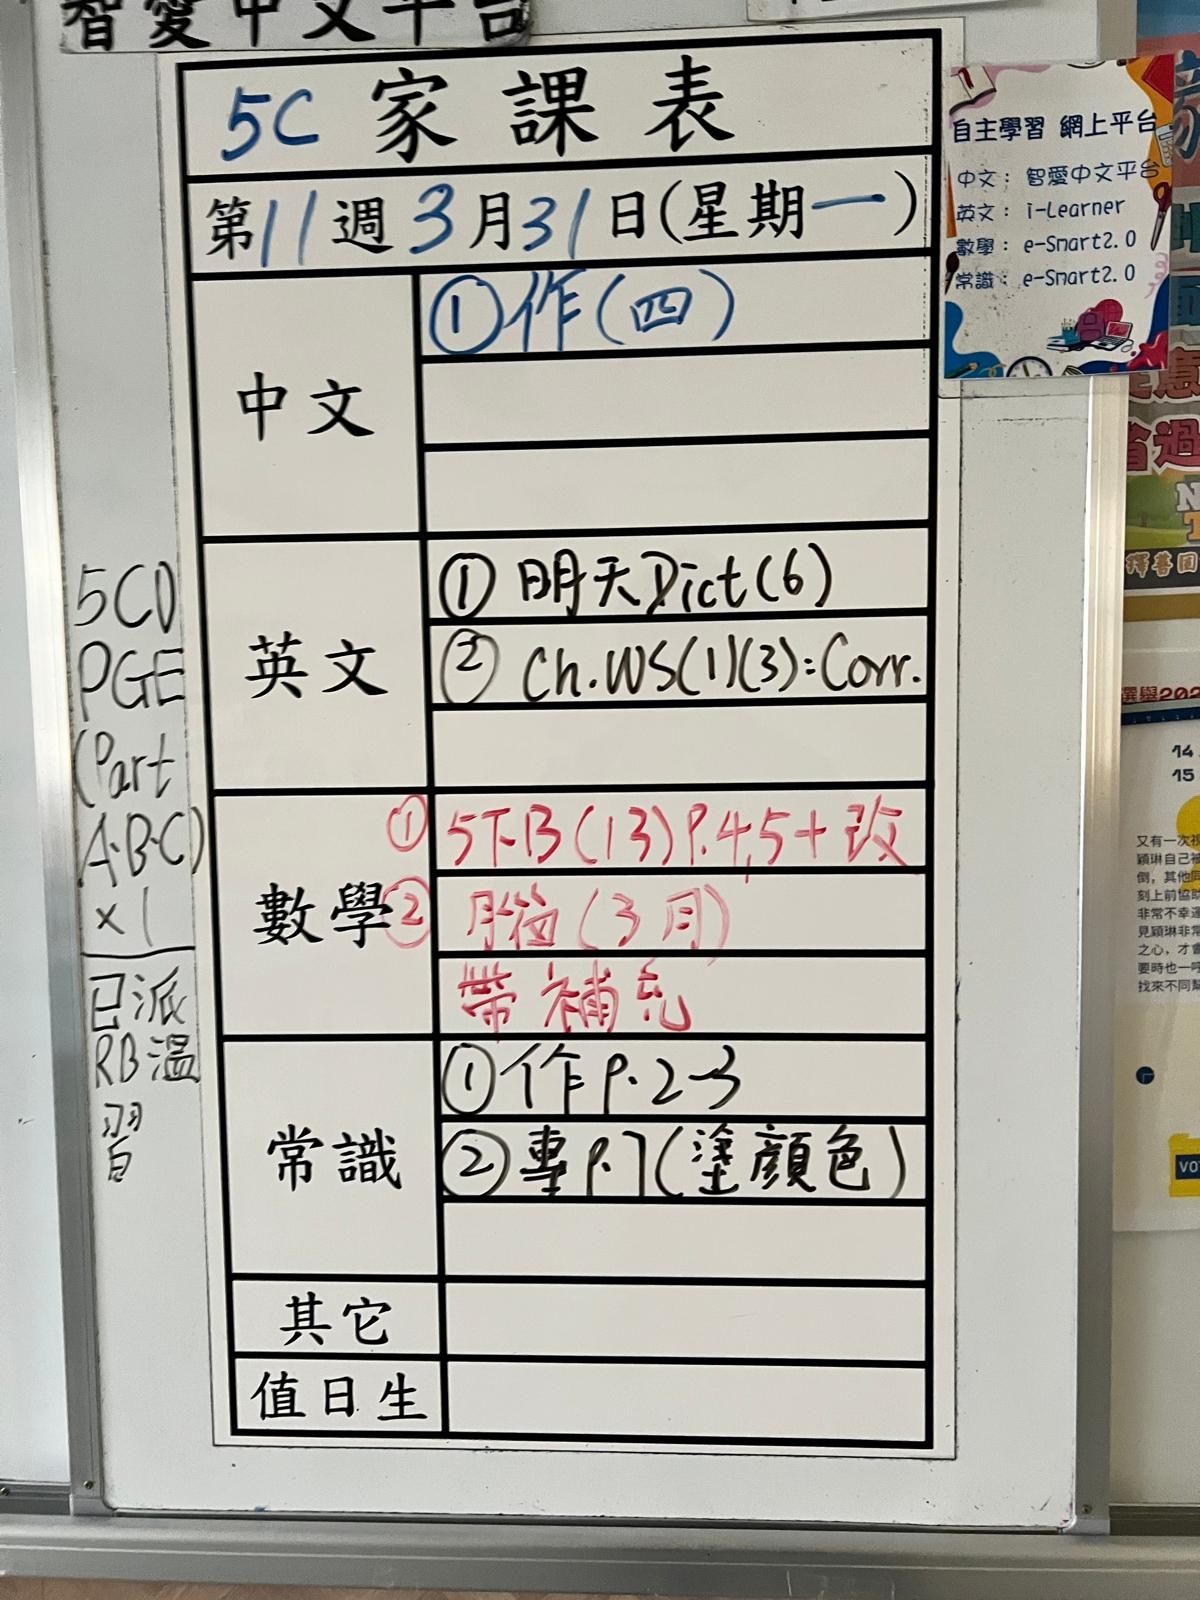 智愛中文平台
5C 家課表
第11週3月31日(星期一)
中文
①作(四)
英文
① 明天Dict(6)
② Ch.WS(1)(3):Corr.
數學
① 5下B(13)P.4,5+改
② (3月)
帶補充
常識
①作P.2-3
②專P.7(塗顏色)
其它
值日生
5CD
PGE
(Part
A.B.C)
×1
已派
RB溫
習
自主學習 網上平台
中文: 智愛中文平台
英文: i-Learner
數學: e-Smart2.0
常識: e-Smart2.0
意
省過
擇善固
選舉202
14
15
又有一次
穎琳自己被
倒,其他同
刻上前協助
非常不幸運
見穎琳非常
之心,才會
要時也一
找來不同幫
VO